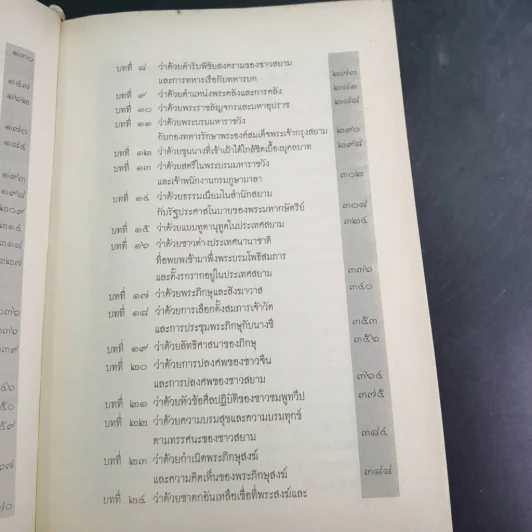 ๑๓๐
๑๔๗
๑๒๒
๑๗๐
๑๘๔
๑๙๓
๑๙๘
๒๐๙
๒๑๔
๒๑๘
๒๒๗
บทที่ ๘ ว่าด้วยตำรับพิชัยสงครามของชาวสยาม
และการทหารเรือกับทหารบก ๒๗๓
บทที่ ๙ ว่าด้วยตำแหน่งพระคลังและการคลัง ๒๘๑
บทที่ ๑๐ ว่าด้วยพระราชลัญจกรและมหาอุปราช ๒๘๘
บทที่ ๑๑ ว่าด้วยพระบรมมหาราชวัง
กับกองทหารรักษาพระองค์สมเด็จพระเจ้ากรุงสยาม ๒๙๐
บทที่ ๑๒ ว่าด้วยขุนนางที่เข้าเฝ้าได้ใกล้ชิดเบื้องยุคลบาท ๒๙๘
บทที่ ๑๓ ว่าด้วยสตรีในพระบรมมหาราชวัง
และเจ้าพนักงานกรมภูษามาลา ๓๐๒
บทที่ ๑๔ ว่าด้วยธรรมเนียมในสำนักสยาม
กับรัฐประศาสโนบายของพระมหากษัตริย์ ๓๐๘
บทที่ ๑๕ ว่าด้วยแบบทูตานุทูตในประเทศสยาม ๓๒๔
บทที่ ๑๖ ว่าด้วยชาวต่างประเทศนานาชาติ
ที่อพยพเข้ามาพึ่งพระบรมโพธิสมภาร
และตั้งรกรากอยู่ในประเทศสยาม ๓๓๖
บทที่ ๑๗ ว่าด้วยพระภิกษุและสังฆาวาส ๓๔๐
บทที่ ๑๘ ว่าด้วยการเลือกตั้งสมภารเจ้าวัด
และการประชุมพระภิกษุกับนางชี ๓๕๓
บทที่ ๑๙ ว่าด้วยลัทธิศาสนาของภิกษุ ๓๕๖
บทที่ ๒๐ ว่าด้วยการปลงศพของชาวจีน
และการปลงศพของชาวสยาม ๓๖๔
บทที่ ๒๑ ว่าด้วยหัวข้อศีลปฏิบัติของชาวชมพูทวีป ๓๗๕
บทที่ ๒๒ ว่าด้วยความบรมสุขและความบรมทุกข์
ตามทรรศนะของชาวสยาม ๓๘๔
บทที่ ๒๓ ว่าด้วยกำเนิดพระภิกษุสงฆ์
และความคิดเห็นของพระภิกษุสงฆ์ ๓๘๘
บทที่ ๒๔ ว่าด้วยชาดกอันเหลือเชื่อที่พระสงฆ์และ